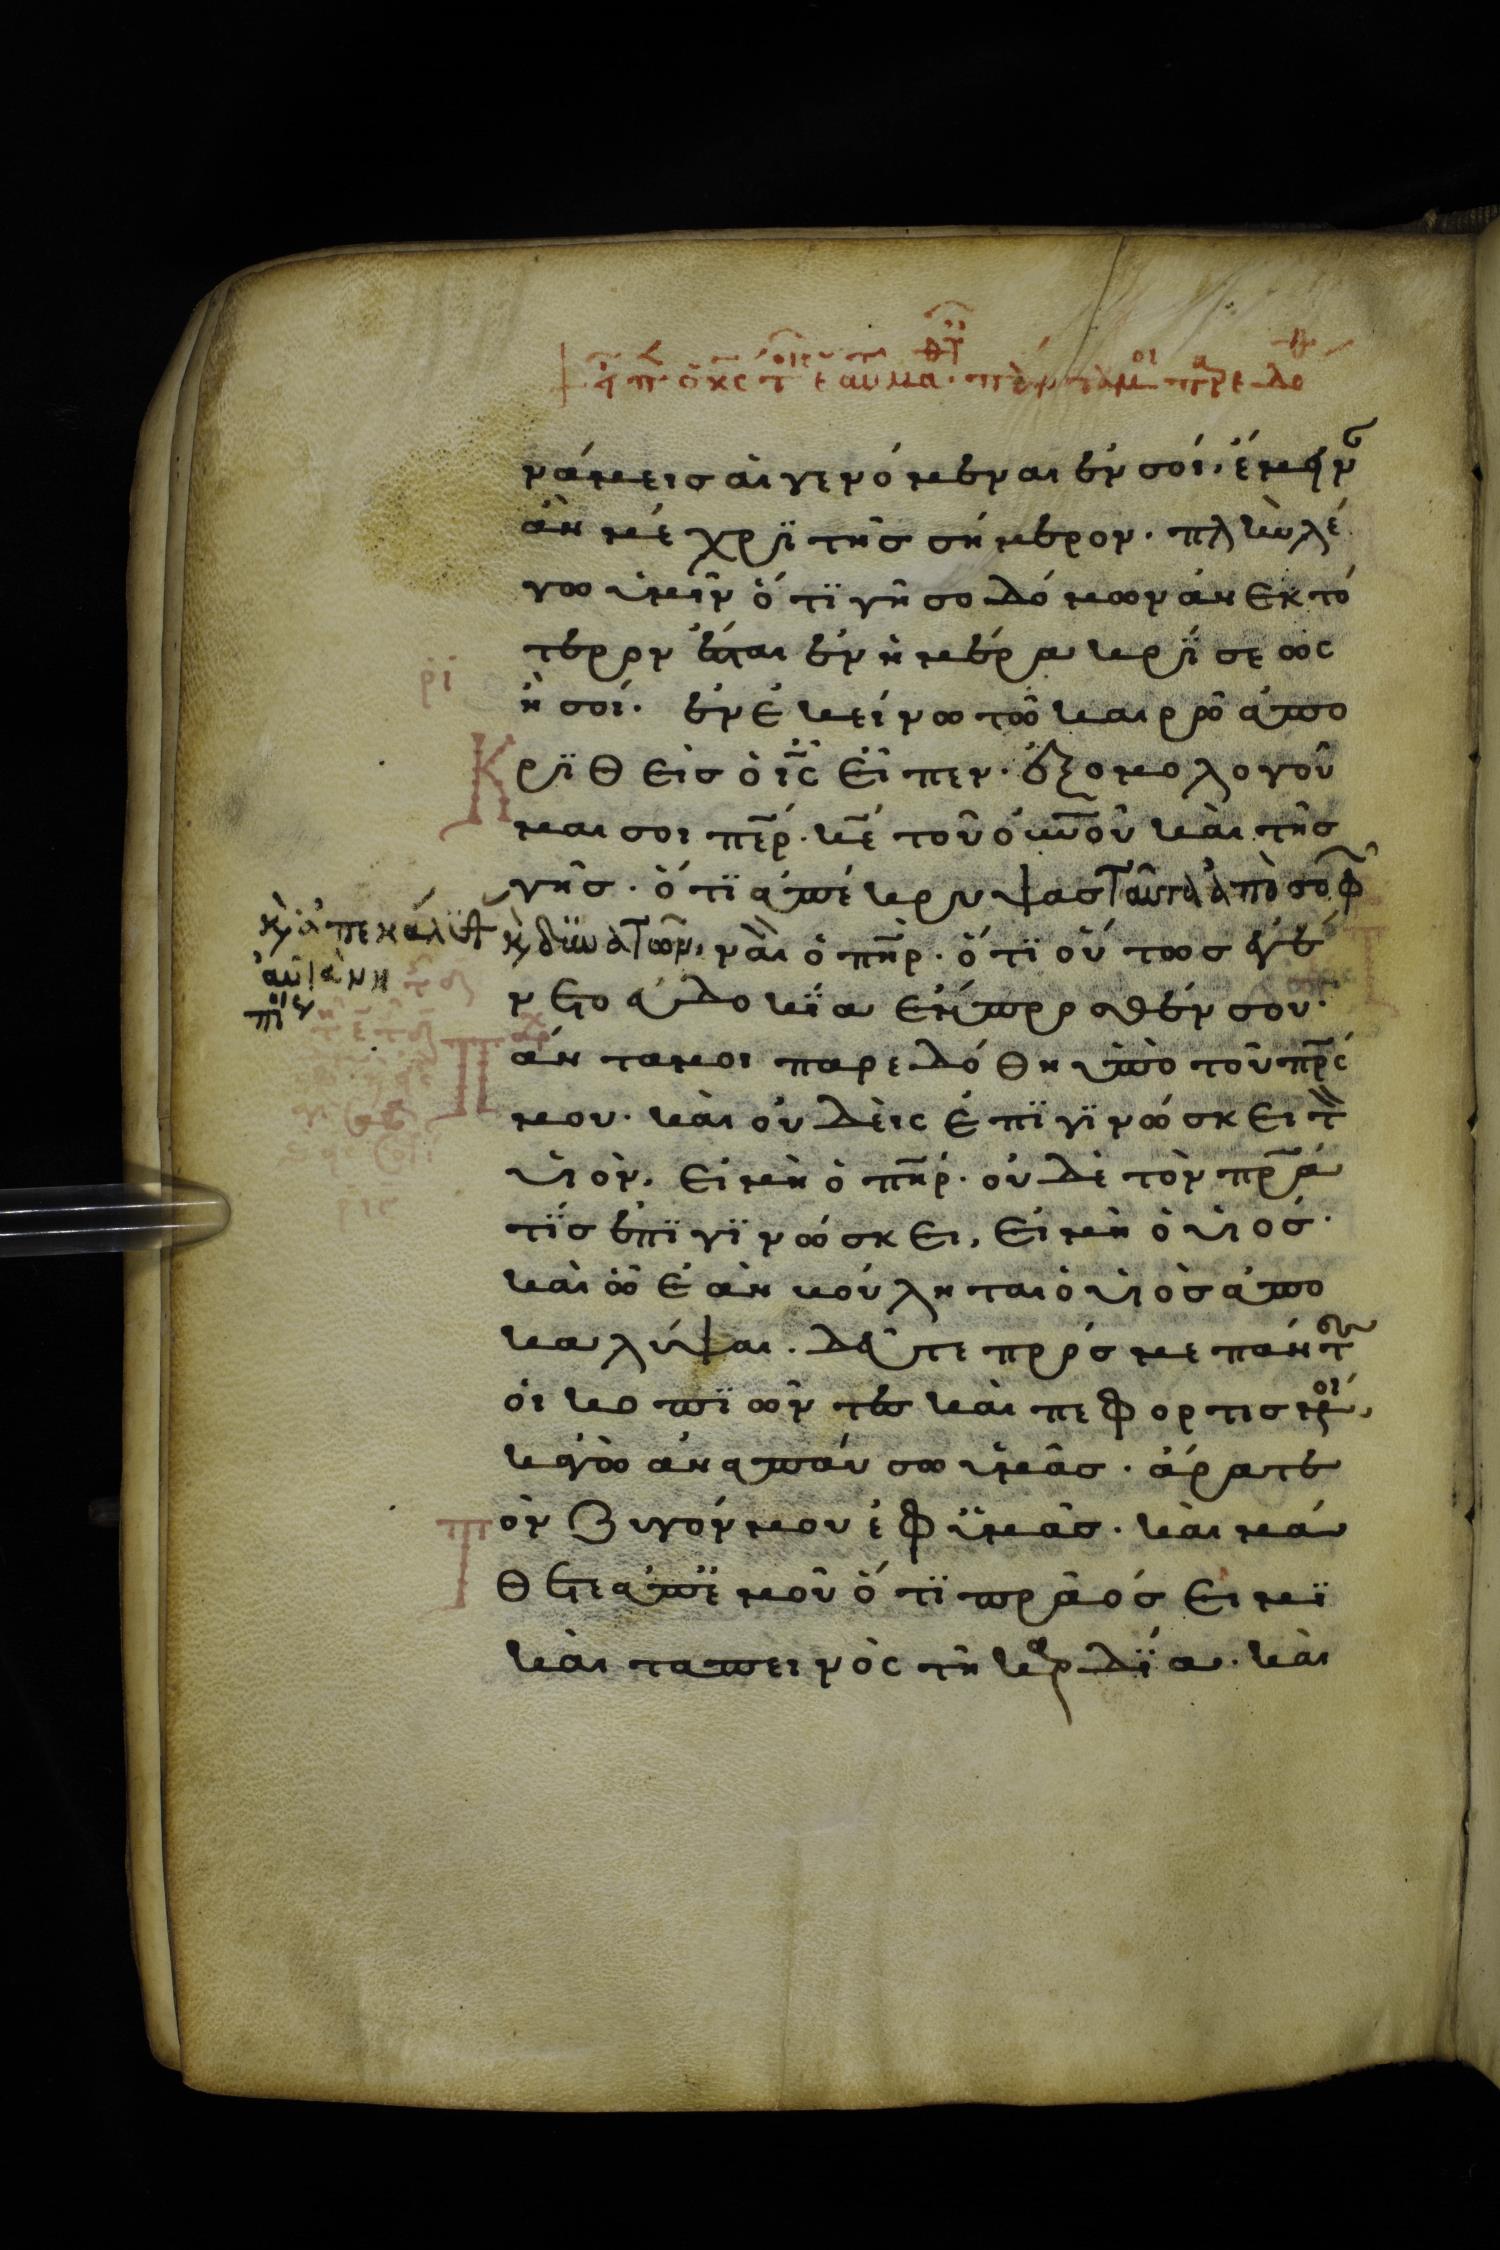 νάμεις αἱ γενόμεναι ἐν σοί, ἔμειν
ἂν μέχρϊ τῆς σήμερον. πλὴν λέ
γω ὑμῖν ὅτϊ γῆ σοδόμων ἀνεκτό
τερον ἔσται ἐν ἡμέρα κρϊσεως
ἢ σοί. ἐν ἐκείνω τῶ καιρῶ ἀπο
Κρϊθεὶς ὁ ι̅ς̅ εἶπεν. ἐξομολογοῦ
μαι σοι π̅ε̅ρ̅. κ̅ε̅ τοῦ ο̅υ̅ν̅ο̅ῦ καὶ τῆς
γῆς. ὅτϊ ἀπέκρυψας ταῦτα ἀπὸ σοφ
κ̀ δυνατῶν, ναὶ ὁ π̅η̅ρ̅. ὅτϊ οὕτως ἐγέ
κ̀ ἀπεκάλυ
αὐτὰ νη
πίοι
νετο εὐδοκΐα ἔμπροσθέν σου.
Πάντα μοι παρεδόθη ὑπὸ τοῦ π̅ρ̅ς̅
μου. καὶ οὐδεὶς ἐπϊγϊνώσκει τ̀
υἱὸν, εἰ μὴ ὁ π̅η̅ρ̅. οὐδὲ τὸν π̅ρ̅α̅
τΐς ἐπϊγϊνώσκει, εἰ μὴ ὁ υἱός.
καὶ ὧ ἐὰν βούληται ὁ υἱὸς ἀπο
καλύψαι. δεῦτε πρός με πάντ
οἱ κοπϊῶντες καὶ πεφορτισμοι,
κἀγὼ ἀναπαύσω ὑμᾶς. ἄρατε
Τὸν ζυγόν μου ἐφ ὑμᾶς. καὶ μά
θετε ἀπ ἐμοῦ ὅτϊ πρᾶός εἰμϊ
καὶ ταπεινὸς τῆ καρδΐα. καὶ
ρι